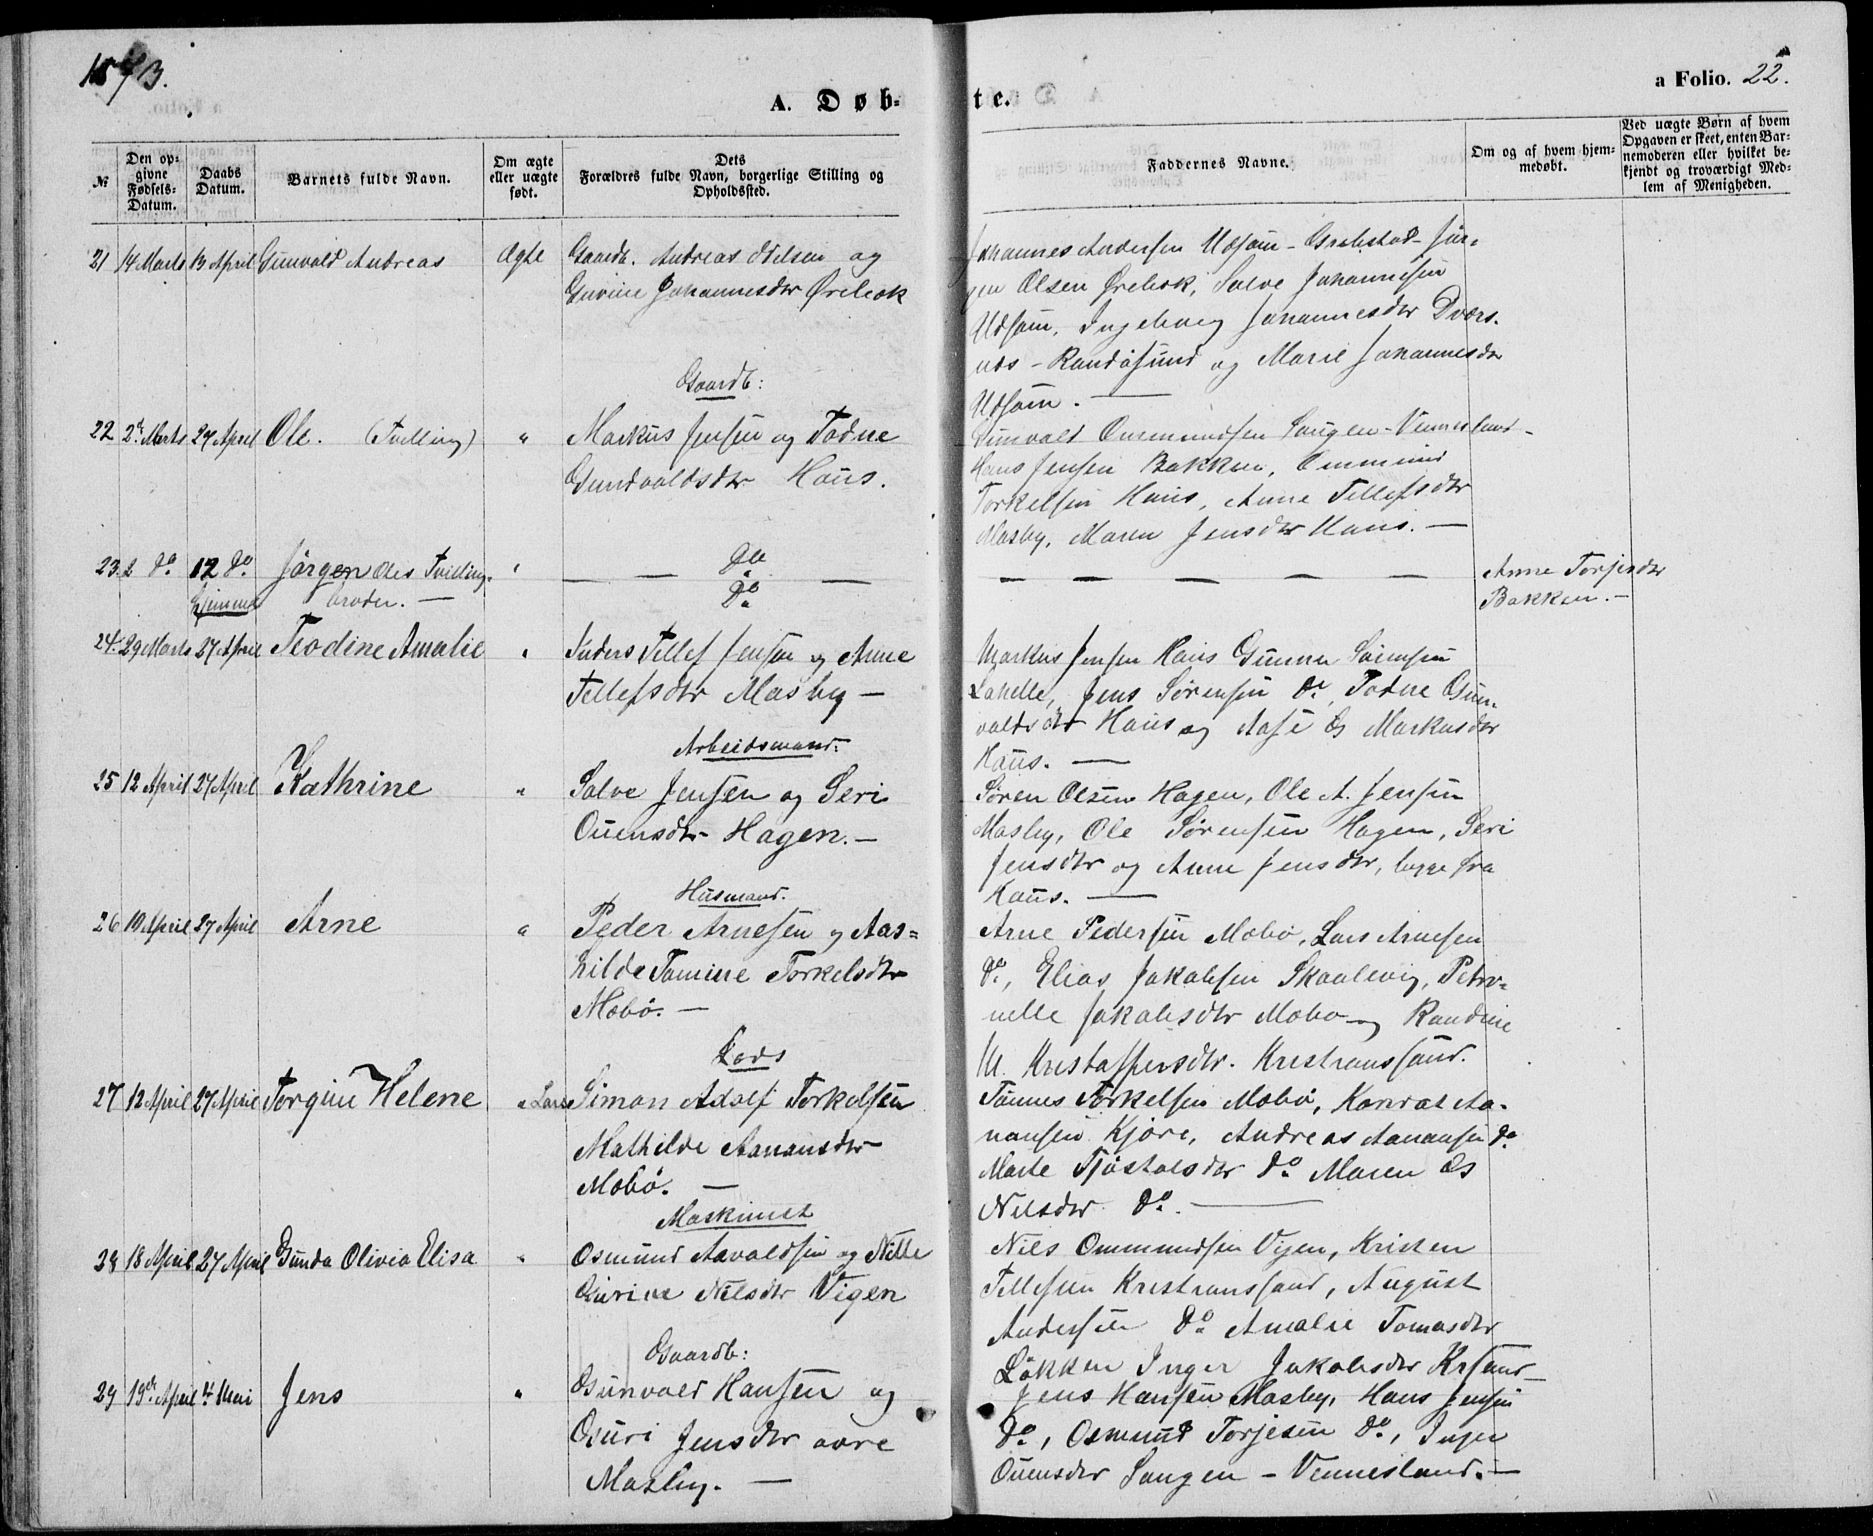 1873.
A. Døb-
te.
a Folio. 22.
№
Den op-
givne
Fødsels-
Datum.
Daabs
Datum.
Barnets fulde Navn.
Om ægte
eller uægte
født.
Dets
Forældres fulde Navn, borgerlige Stilling og
Opholdssted.
Faddernes Navne.
Om og af hvem hjem-
medøbt.
Ved uægte Børn af hvem
Opgaven er skeet, enten Bar-
nemoderen eller hvilket be-
kjendt og troværdigt Med-
lem af Menigheden.
21 14 Marts 13 April Gunvald Andreas Ægte Gaardb. Andreas Odelsen og
Gurine Johannesdtr Ørebek
Johannes Andersen Udsøm - Grebstad - Jør-
gen Olsen Ørebek, Salve Johannesen
Udsøm, Ingeborg Johannesdtr Dværs-
næs - Randøsund og Marie Johannesdtr
Udsøm. —
Gaardb:
22 2de Marts 27 April Ole. (Tvilling) " Markus Jensen og Todne
Gundvaldsdtr Haus.
Gunvald Ommundsen Saugen - Vennesland -
Hans Jensen Bakken, Ommund
Torkelsen Haus, Anne Tellefsdtr
Mosby, Maren Jensdtr Haus. —
23. 2 do 12 do Jørgen Oles Tvilling- " — — do —
Hjemme broder. — Do
— — — — — —
Anne Torjesdtr
Bakken. —
24. 29 Marts 27 April Teodine Amalie " Anders Tellef Jensen og Anne
Tellefsdtr Mosby —
Markus Jensen Haus Gunner Sørensen
Lahelle, Jens Sørensen do, Todne Gun-
valdsdtr Haus og Aase Markusdtr
Haus. —
Arbeidsmand:
25 12 April 27 April Kathrine " Salve Jensen og Seri
Ouensdtr Hagen. —
Søren Olsen Hagen, Ole A. Jensen
Mosby, Ole Sørensen Hagen, Seri
Jensdtr og Anne Jensdtr, begge fra
Haus. —
Husmand.
26 10 April 27 April Arne " Peder Arnesen og Aas-
hilde Tomine Torkelsdtr
Mobø. —
Arne Pedersen Mobø, Lars Arnesen
do, Elias Jakobsen Skaalevig, Petro-
nelle Jakobsdtr Mobø og Randine
M. Kristoffersdtr. Kristianssand.
Lods
27 12 April 27 April Torgun Helene " Simon Adolf Torkelsen
Mathilde Aanonsdtr
Mobø. —
Tønnes Torkelsen Mobø, Konrad Aa-
nonsen Kjøre, Andreas Aanonsen do
Marte Tjøstolsdtr do Maren
Nilsdtr do. —
Maskinist
28 18 April 27 April Gunda Olivia Elisa " Osmund Aavaldsen og Nille
Gurine Nilsdtr Vigen
Nils Ommundsen Vigen, Kristen
Tellefsen Kristianssand, August
Andersen do Amalie Tomasdtr
Løkken Inger Jakobsdtr Krsand —
Gaardb:
29 19de April 4 Mai Jens " Gunvald Hansen og
Guri Jensdtr øvre
Mosby. —
Jens Hansen Mosby, Hans Jensen
do, Osmund Torjesen do, Inger
Ouensdtr Saugen - Vennesland. —